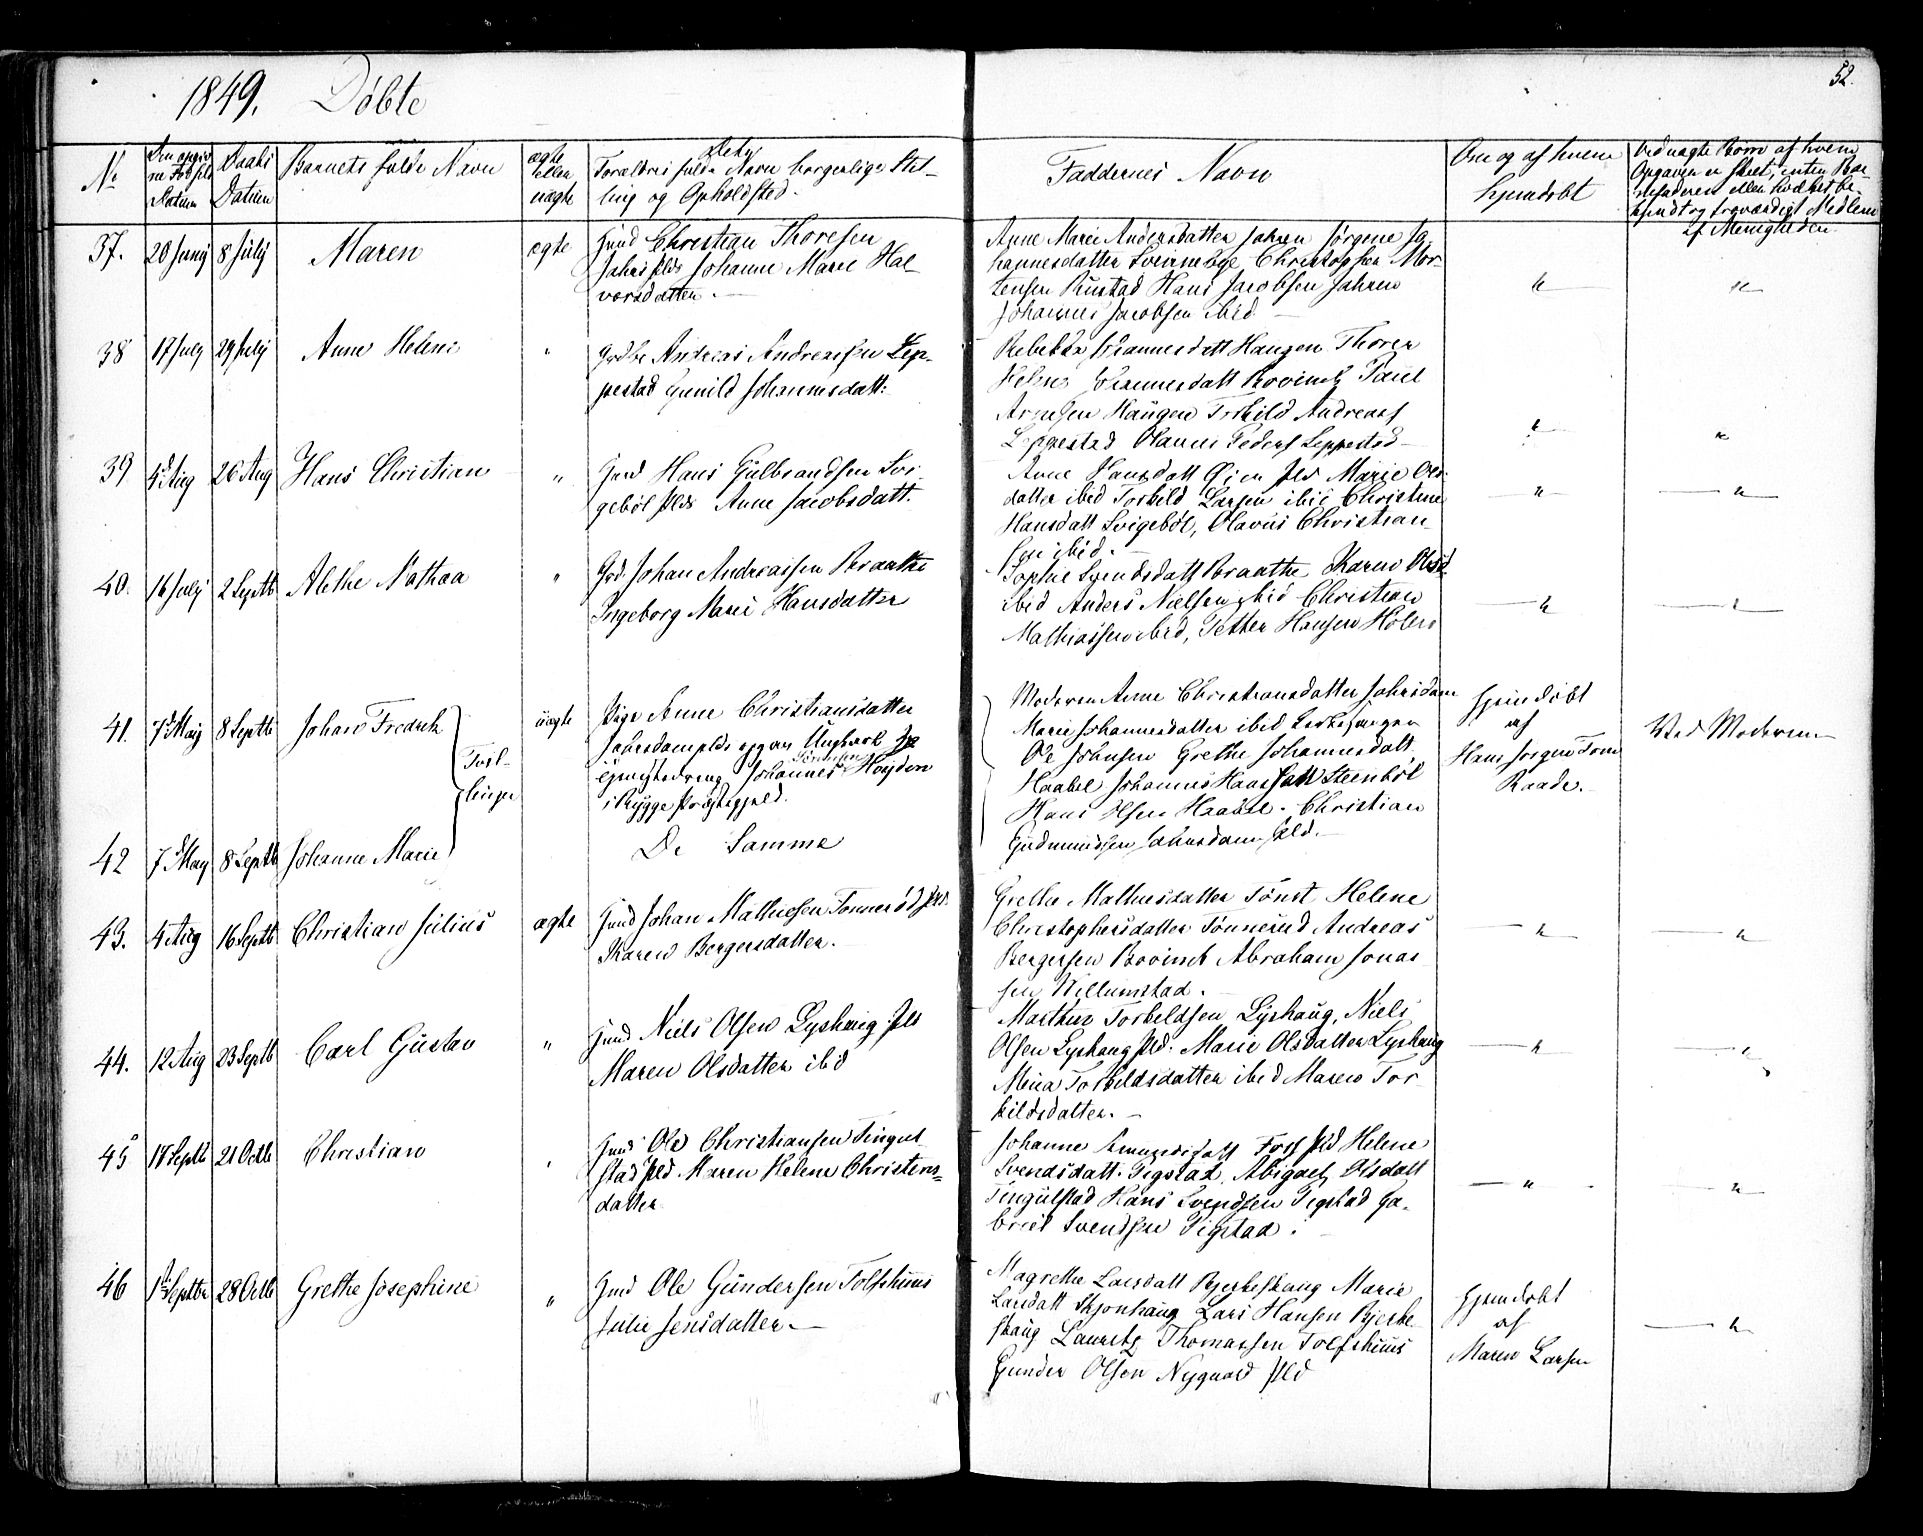 52.
1849. Døbte
No
Den opgiv
ne Fødsels
Datum
Daabs
Datum
Barnets fulde Navn
ægte
eller
uægte
Forældres fulde Navn borgerlige Stil-
ling og Opholdsted.
Faddernes Navn
Om og af hvem
hjemdøbt
Ved uægte Børn af hvem
Opgaven er skeet, enten Bar-
nefaderen eller hvilket be-
kjendt og troværdigt Medlem
af Menigheden.
37. 20 Juny 8 July Maren ægte Gmd Christian Thoresen
Johanne Marie Hal-
vorsdatter.
Anne Marie Andersdatter Jahren Jørgine Jo
hannesdatter Christopher Mor-
tensen Rustad Hans Jacobsen Jahren
Johannes Jacobsen ibid
38 17 July 29 July Anne Helene " Andreas Andreassen Lep-
pestad Gunild Johannesdatt:
Rebekka Johannesdatt Haugen Thorer
Helene Johannesdatt Paul
Arnesen Haugen Torkild Andreas
Leppestad Olaus Peders Leppestad
39 4d Aug 26 Aug Hans Christian " Gmd Hans Gulbrandsen Svi-
gebøl plds Anne Jacobsdatt.
Anne Hansdatt Øien pls Marie Ols-
datter ibid Torkild Larsen ibid Christine
Hansdatt Svigebøl, Olavus Christian-
sen ibid.
40. 16 July 2 Septb Alethe Mathea " Johan Andreassen Braathe
Ingeborg Marie Hansdatter
Sophie Svendsdatt Braathe Karen Olsd
ibid Anders Nielsen ibid Christian
Mathiassen ibid, Petter Hansen Holen
41. 7d May 8 Septb Johan Fredrik uægte Pige Anne Christiansdatter
opgav Ungkarl
Johannes Høyden
i Rygge Præstegjeld.
Tvil-
linger
Moderen Anne Christiansdatter
Marie Johannesdatter ibid
Ole Johnsen Grethe Johannesdatt
Haabøl Johannes Steenbøl
Hans Olsen Haabøl. Christian
Gudmundsen
Hjemdøbt
af
Hans Jørgen
Raade.
Ved Moderen
42 7d May 8 Septb Johanne Marie De Samme
43. 4 Aug 16 Septb Christian Julius ægte Gmd Johan Mathiesen Tonnerød plds
Karen Bergersdatter.
Grethe Mathiesdatter Helene
Christophersdatter Tønnerud Andreas
Bergersen Abraham Jonas-
sen Willumstad.
44. 12 Aug 23 Septb Carl Gustav " Gmd Niels Olsen Lyshaug pls
Maren Olsdatter ibid
Torkeldsen Lyshaug, Niels
Olsen Lyshaug pld. Marie Olsdatter Lyshaug
Mina Torkeldsdatter ibid Maren Tor-
kildsdatter.
45 18 Septb 21 Octb Christian Gmd Ole Christiansen Tingul-
stad pld. Maren Helene Christens-
datter
Johanne Foss pld Helene
Svendsdatt. Tigstad, Abigael Olsdatt
Tingulstad Hans Svendsen Tigstad Ga-
briel Svendsen Tigstad.
46 1ste Septbr 28 Octb Grethe Josephine " Gmd Ole Gundersen Tolfshuus
Julie Jensdatter.
Magrethe Larsdatt Bjerkeskaug Marie
Larsdatt Skjønhaug Lars Hansen Bjerke-
skaug Lauritz Thomassen Tolfshuus
Gunder Olsen Nygaard pld
Hjemdøbt
af
Maren Larsen